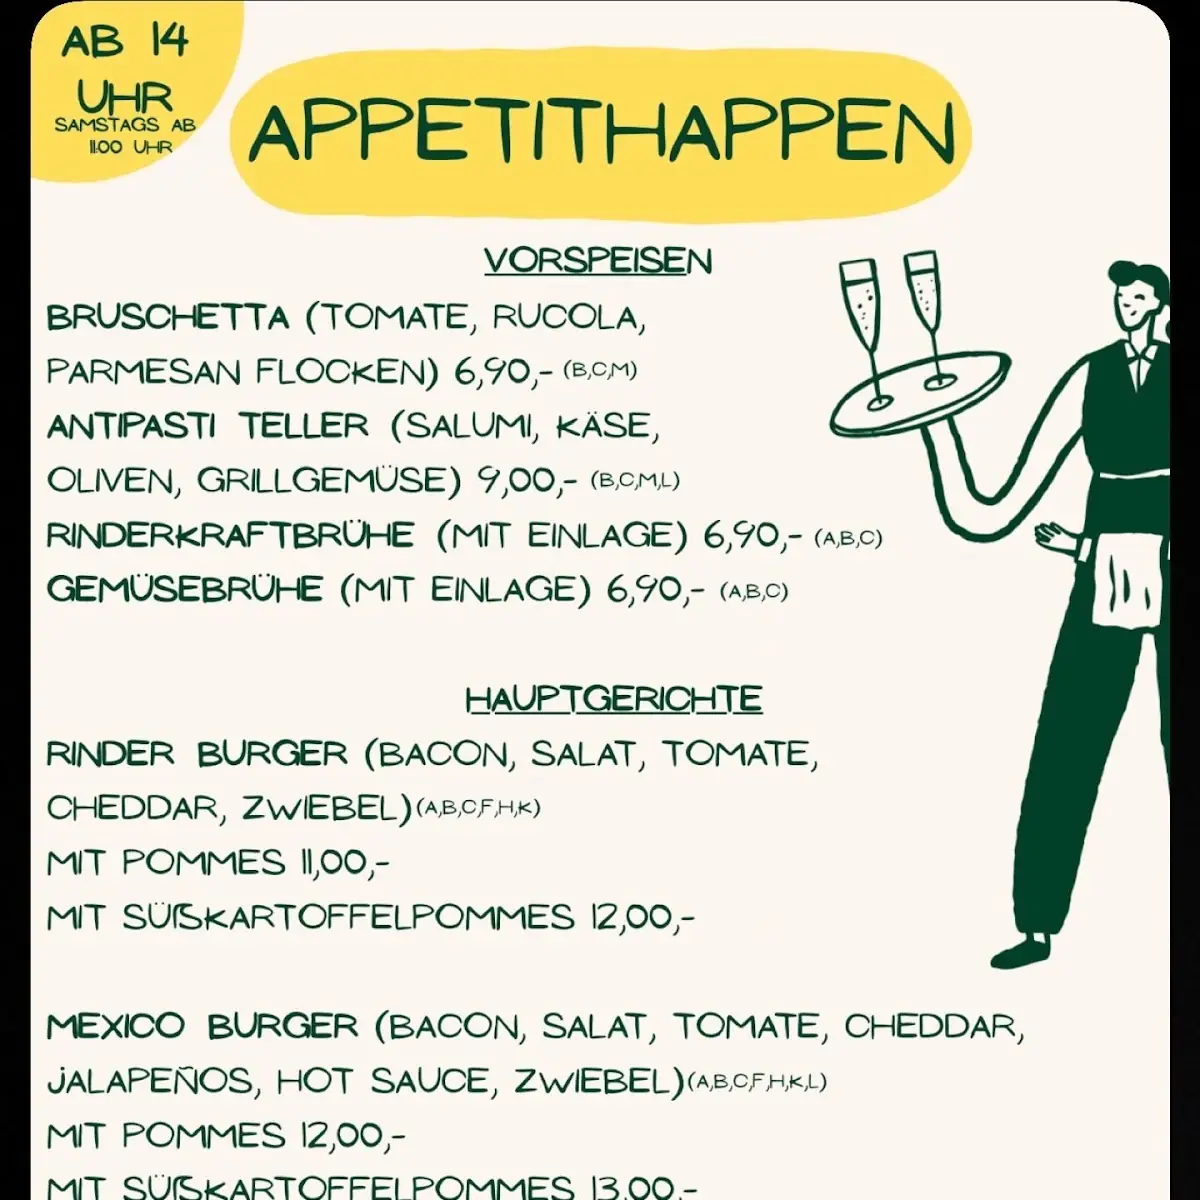 AB 14
UHR
SAMSTAGS AB
11:00 UHR
APPETITHAPPEN
VORSPEISEN
BRUSCHETTA (TOMATE, RUCOLA,
PARMESAN FLOCKEN) 6,90,- (B,C,M)
ANTIPASTI TELLER (SALUMI, KÄSE,
OLIVEN, GRILLGEMÜSE) 9,00,- (B,C,M,L)
RINDERKRAFTBRÜHE (MIT EINLAGE) 6,90,- (A,B,C)
GEMÜSEBRÜHE (MIT EINLAGE) 6,90,- (A,B,C)
HAUPTGERICHTE
RINDER BURGER (BACON, SALAT, TOMATE,
CHEDDAR, ZWIEBEL)(A,B,C,F,H,K)
MIT POMMES 11,00,-
MIT SÜßKARTOFFELPOMMES 12,00,-
MEXICO BURGER (BACON, SALAT, TOMATE, CHEDDAR,
JALAPEÑOS, HOT SAUCE, ZWIEBEL)(A,B,C,F,H,K,L)
MIT POMMES 12,00,-
MIT SÜßKARTOFFELPOMMES 13,00,-